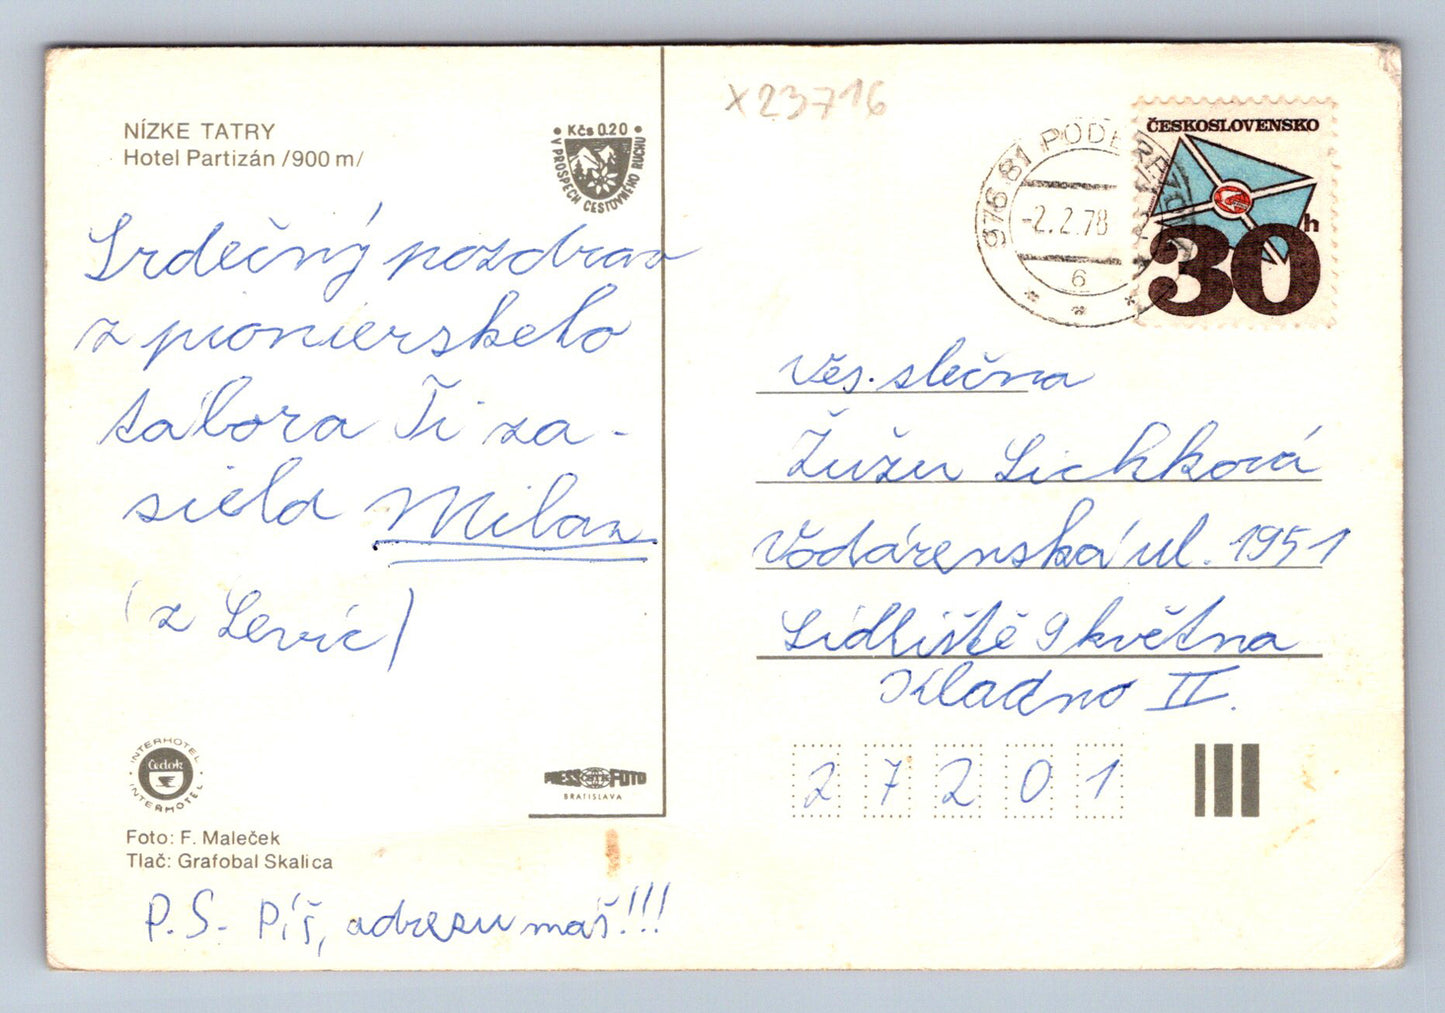 NÍZKE TATRY
Hotel Partizán /900 m/
Kčs 0.20
V PROSPECH CESTOVNÉHO RUCHU
Srdečný pozdrav
z pionierskeho
tábora Ti za-
siela Milan
(z Levíc)
INTERHOTEL
Čedok
INTERHOTEL
PRESSFOTO
BRATISLAVA
Foto: F. Maleček
Tlač: Grafobal Skalica
P.S. Píš, adresu máš!!!
X23716
976 81 PODBREZOVÁ
-2.2.78
6
ČESKOSLOVENSKO
30h
Väs. slečna
Žužu Lichková
Vodárenská ul. 1951
Sídliště 9 května
Kladno II.
27201